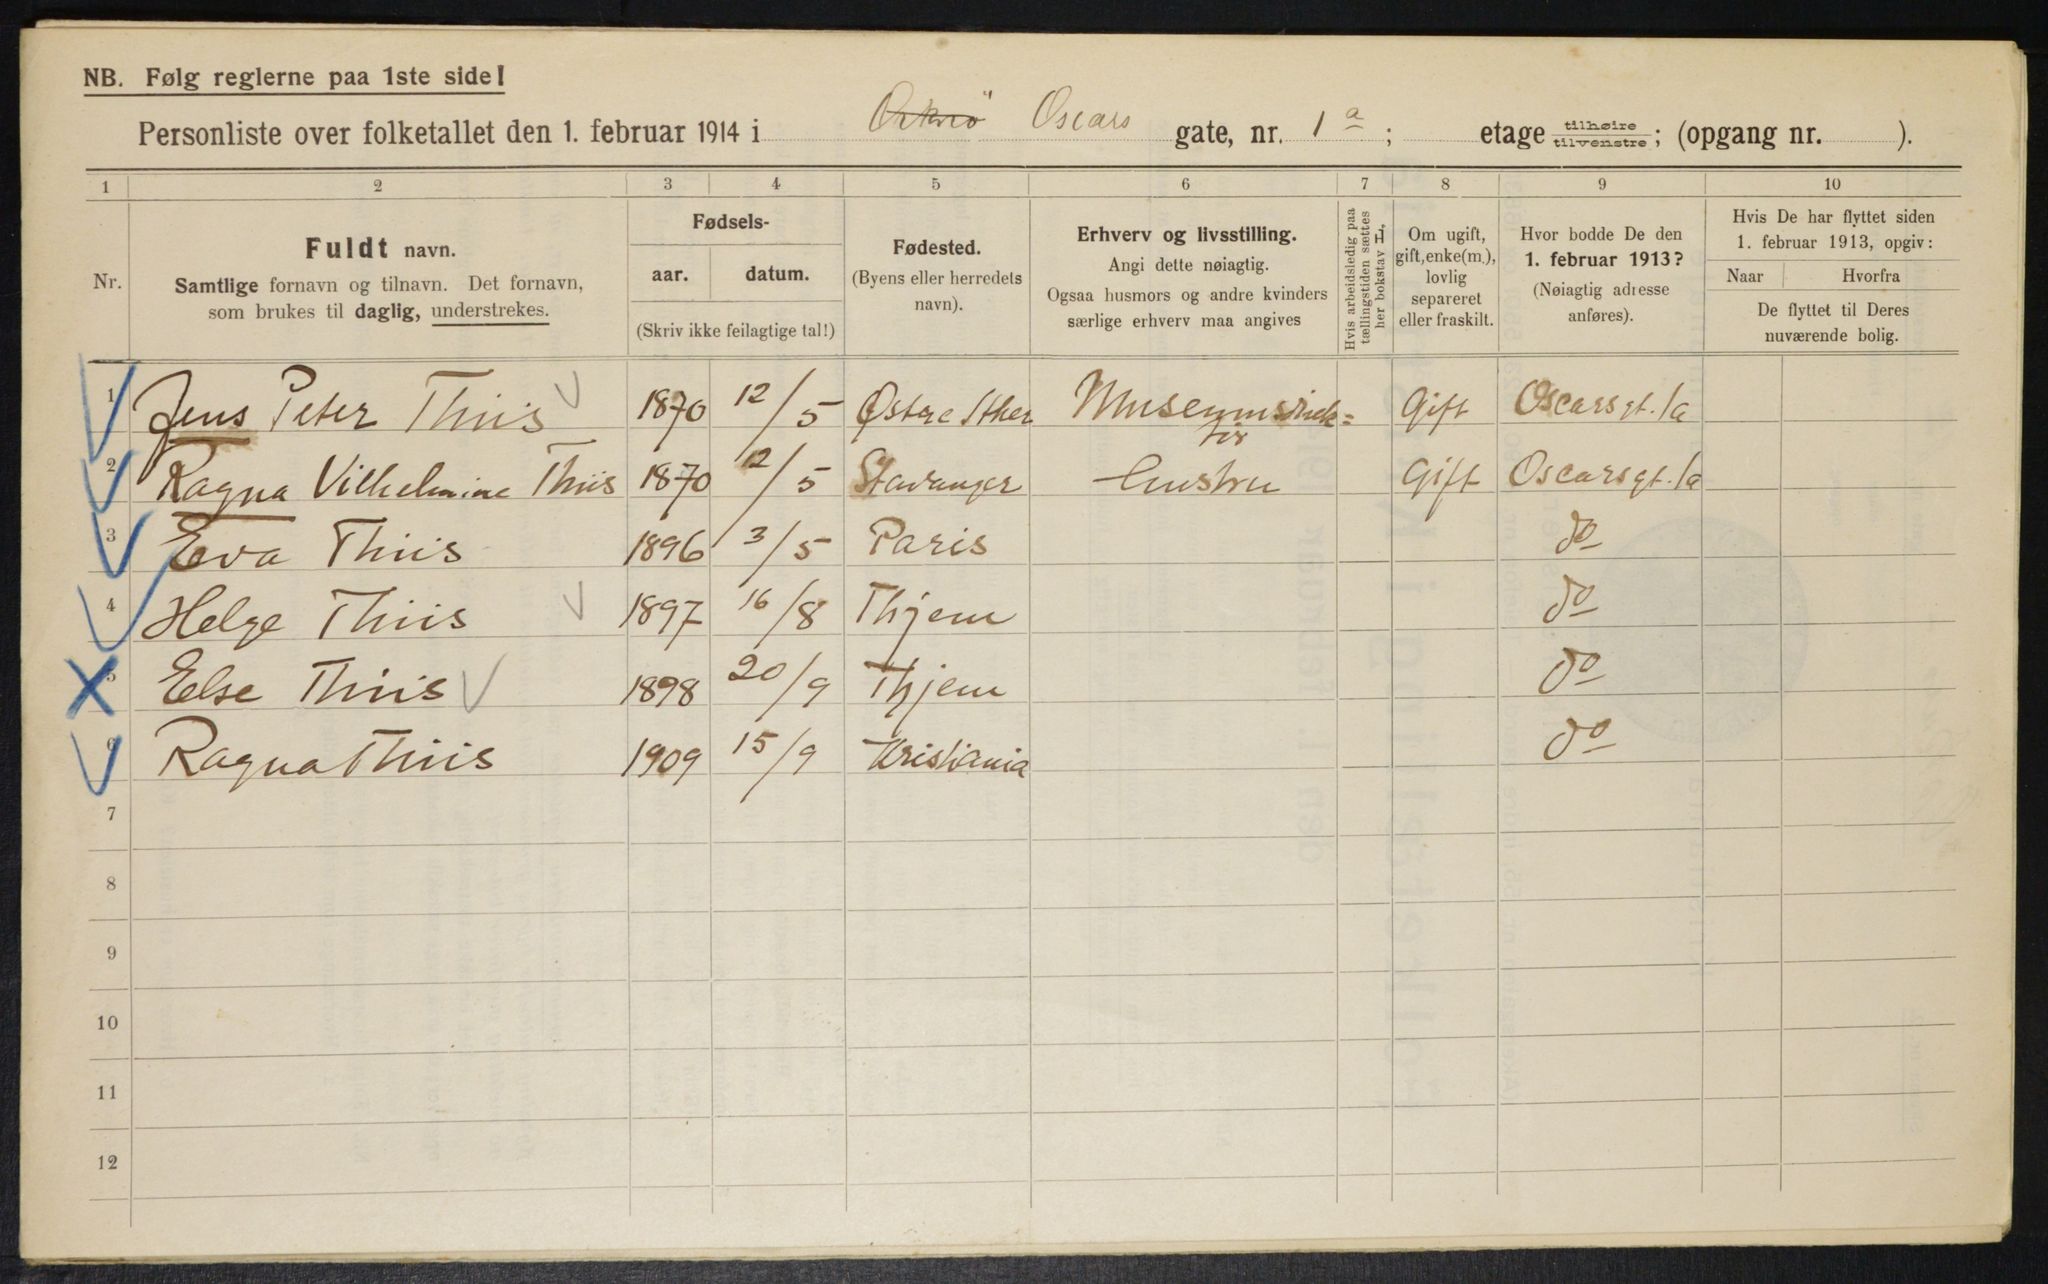 NB. Følg reglerne paa 1ste side!
Personliste over folketallet den 1. februar 1914 i Oscars gate, nr. 1 a ; etage tilhøire tilvenstre ; (opgang nr. ).
1 2 3 4 5 6 7 8 9 10
Nr.
Fuldt navn.
Samtlige fornavn og tilnavn. Det fornavn,
som brukes til daglig, understrekes.
Fødsels-
aar. datum.
(Skriv ikke feilagtige tal!)
Fødested.
(Byens eller herredets
navn).
Erhverv og livsstilling.
Angi dette nøiagtig.
Ogsaa husmors og andre kvinders
særlige erhverv maa angives
Hvis arbeidsledig paa
tællingstiden sættes
her bokstav L.
Om ugift,
gift, enke(m.),
lovlig
separeret
eller fraskilt.
Hvor bodde De den
1. februar 1913?
(Nøiagtig adresse
anføres).
Hvis De har flyttet siden
1. februar 1913, opgiv:
Naar Hvorfra
De flyttet til Deres
nuværende bolig.
1 Jens Peter Thiis 1870 12/5 Østre Gift Oscarsgt. 1a
2 Ragna Vilhelmine Thiis 1870 12/5 Stavanger Hustru Gift Oscarsgt. 1a
3 Eva Thiis 1896 3/5 Paris do
4 Helge Thiis 1897 16/8 Thjem do
5 Else Thiis 1898 20/9 Thjem do
6 Ragna Thiis 1909 15/9 Kristiania do
7
8
9
10
11
12